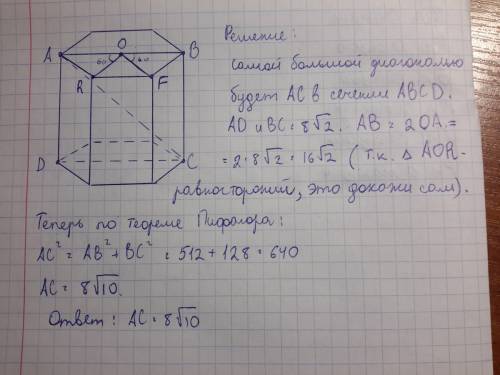 Решение:
Самой большой диагональю
будет AC в сечении ABCD.
AD и BC = 8√2. AB = 2OA =
= 2·8√2 = 16√2 (т.к. Δ AOR-
равносторонний, это докажи сам).
A O B
60° 60°
R F
D C
Теперь по теореме Пифагора:
AC² = AB² + BC² = 512 + 128 = 640
AC = 8√10.
Ответ: AC = 8√10